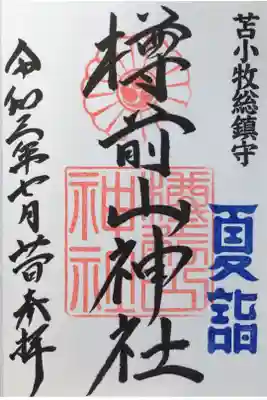 苫小牧総鎮守
夏詣
樽前山神社
樽前山
神社
令和 年七月 奉拝